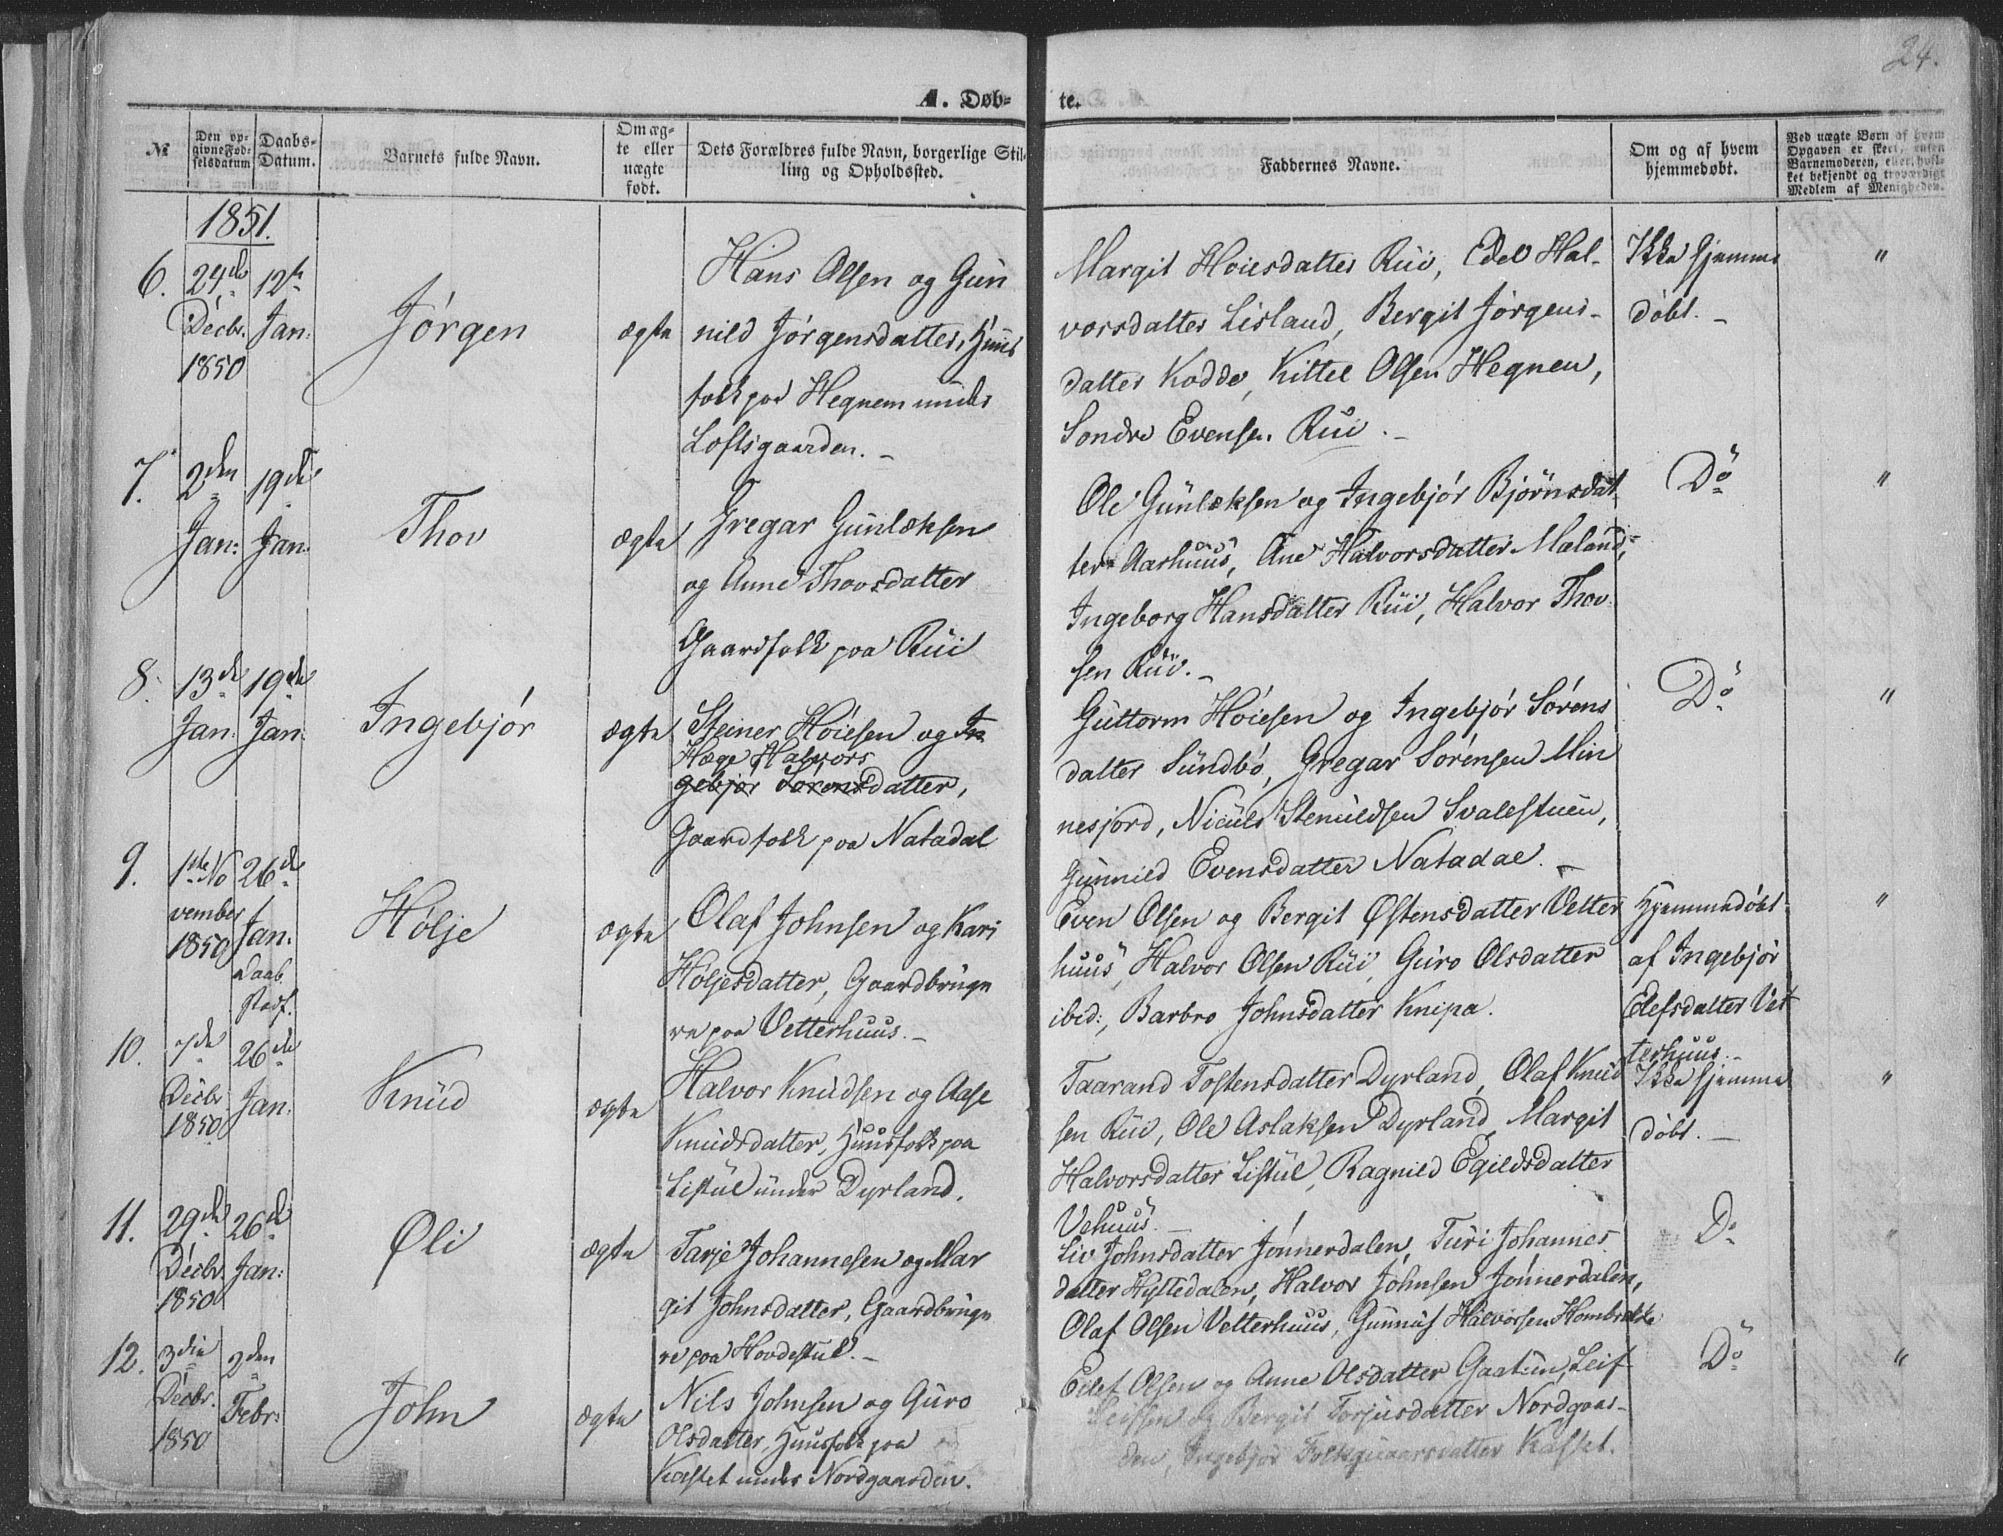 24.
A. Døb-
te.
№
Den op-
givne Fød-
selsdatum
Daabs-
Datum.
Barnets fulde Navn.
Om æg-
te eller
uægte
født.
Dets Forældres fulde Navn, borgerlige Stil-
ling og Opholdssted.
Faddernes Navne.
Om og af hvem
hjemmedøbt.
Ved uægte Børn af hvem
Opgaven er skeet, enten
Barnemoderen, eller hvil-
ket bekjendt og troværdigt
Medlem af Menigheden.
1851.
6.
24de
Decbr.
1850
12te
Jan:
Jørgen
ægte
Hans Olsen og Gun
nild Jørgensdatter, Huus
folk paa Hegnem under
Loftsgaarden.
Margit Høiesdatter Rui, Edel Hal-
vorsdatter Lisland, Bergit Jørgens-
datter Kodde, Kittel Olsen Hegnen,
Søndre Evensen Rui.
Ikke hjemme
døbt.
"
7.
2den
Jan:
19de
Jan:
Thov
ægte
Gregar Gunlæksen
og Anne Thovsdatter
Gaardfolk paa Rui
Ole Gunlæksen og Ingebjør Bjørnsdat
ter Aarhuus, Ane Halvorsdatter Mæland,
Ingeborg Hansdatter Rui, Halvor Thov
sen Rui.
Do
"
8.
13de
Jan:
19de
Jan:
Ingebjør
ægte
Steiner Høiesen og In
Hæge Halvors
gebjør Sørensdatter,
Gaardfolk paa Natadal
Guttorm Høiesen og Ingebjør Sørens
datter Sundbø, Gregar Sørensen Min
nesjord, Nicúls Stenuldsen Svalestuen,
Gunnild Evensdatter Natadal.
Do
"
9.
1ste No
vember
1850
26de
Jan.
Daab
Stadf.
Hølje
ægte
Olaf Johnsen og Kari
Høljesdatter, Gaardbruge
re paa Vetterhuus.
Even Olsen og Bergit Østensdatter Vetter
huus, Halvor Olsen Rui, Guro Olsdatter
ibid:, Barbro Johnsdatter Knipa.
Hjemmedøbt
af Ingebjør
Elefsdatter Vet
terhuus.
"
10.
7de
Decbr
1850
26de
Jan:
Knud
ægte
Halvor Knudsen og Aase
Knudsdatter, Huusfolk paa
Listul under Dyrland.
Taarand Tostensdatter Dyrland, Olaf Knud
sen Rui, Ole Aslaksen Dyrland, Margit
Halvorsdatter Listul, Ragnild Egildsdatter
Vehuus.
Ikke hjemme
døbt.
"
11.
29de
Decbr.
1850
26de
Jan:
Øli
ægte
Tarje Johannesen og Mar
git Johnsdatter, Gaardbruge
re paa Hovdestul.
Liv Johnsdatter Jønnerdalen, Turi Johannes
datter Hyttedalen, Halvor Johnsen Jønnerdalen,
Olaf Olsen Vetterhuus, Gunnuf Halvorsen Hombrekke
Do
"
12.
3die
Decbr.
1850
2den
Febr:
John
ægte
Nils Johnsen og Guro
Olsdatter, Huusfolk paa
Kastet under Nordgaarden.
Eilef Olsen og Anne Olsdatter Gaatun, Leif
Leifsen og Bergit Torjusdatter Nordgaar-
den, Ingebjør Folkquaarsdatter Kastet.
Do
"